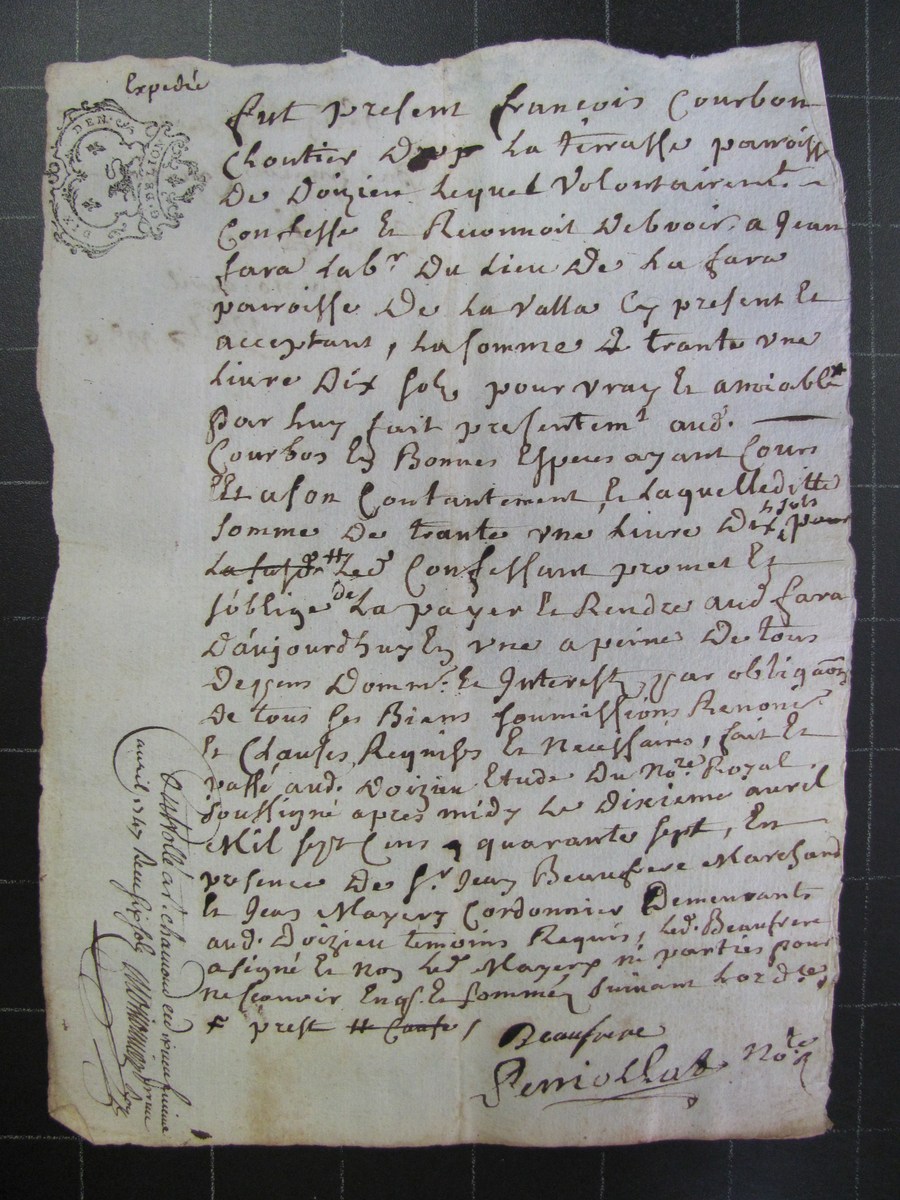 Expedié
DEN
fut present françois Courbon
Cloutier De La terrasse paroisse
De Doizieu Lequel Volontairemt.
Confesse Et Reconnoit Debvoir a Jean
fara Labr. Du Lieu De La fara
paroisse De La Valla Cy present Et
acceptant, La somme De trante une
Livre Dix solz pour vray Et amiable *
par Luy fait presentemt. aud.
Courbon En Bonnes Especes ayant Cours
Et a son Contantement, Et Laquelle ditte
somme De trante une Livre Dix sols
Led. Confessant promet Et
s'oblige de La payer Et Rendre aud. fara
D'aujourd'huy En une a peine De tous
Despens Domm. Et Interests, par obligaon
De tous ses Biens soumissions Renonc.
Et Clauses Requises Et Necessaires, fait Et
passé aud. Doizieu Etude Du Nore. Royal
soussigné apres midy Le Dixieme avril
Mil sept Cens quarante sept, En
presence De Sr. Jean Beaufrere Marchand
Et Jean Mayery Cordonnier Demeurants
aud. Doizieu temoins Requis, Led. Beaufrere
a signé Et non Led. Mayery ni parties pour
ne scavoir Enqs. Et sommés suivant L'ordce
* prest
Beaufrere
Perriollat Nore
Controllé a St chamond ce
avril 1747 Reçu six sols